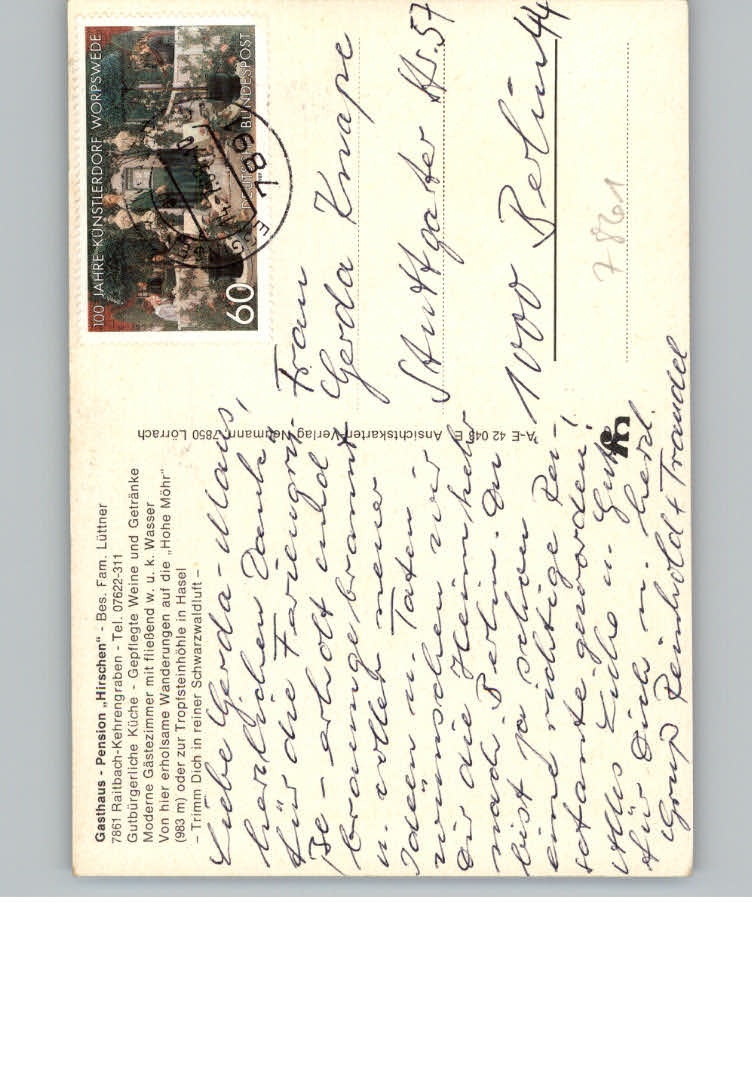 Gasthaus - Pension „Hirschen" - Bes. Fam. Lüttner
7861 Raitbach-Kehrengraben - Tel. 07622-311
Gutbürgerliche Küche - Gepflegte Weine und Getränke
Moderne Gästezimmer mit fließend w. u. k. Wasser
Von hier erholsame Wanderungen auf die „Hohe Möhr"
(983 m) oder zur Tropfsteinhöhle in Hasel
– Trimm Dich in reiner Schwarzwaldluft –
Liebe Gerda-Maus,
herzlichen Dank
für die Feriengrü-
ße – erholt und
braungebrannt
u. voller neuer
Ideen u. Taten
wünschen wir
Dir die Heimkehr
nach Berlin. Du
bist ja schon
eine richtige Rei-
setante geworden!
Alles Liebe u. Gute
für Dich u. herzl.
Gruß Reinhold + Traudel
A-E 42 048 E Ansichtskarten-Verlag Neumann, 7850 Lörrach
100 JAHRE KÜNSTLERDORF WORPSWEDE
60
DEUTSCHE BUNDESPOST
7867
Frau
Gerda Knape
Stuttgarter Str. 57
1000 Berlin 44
7861